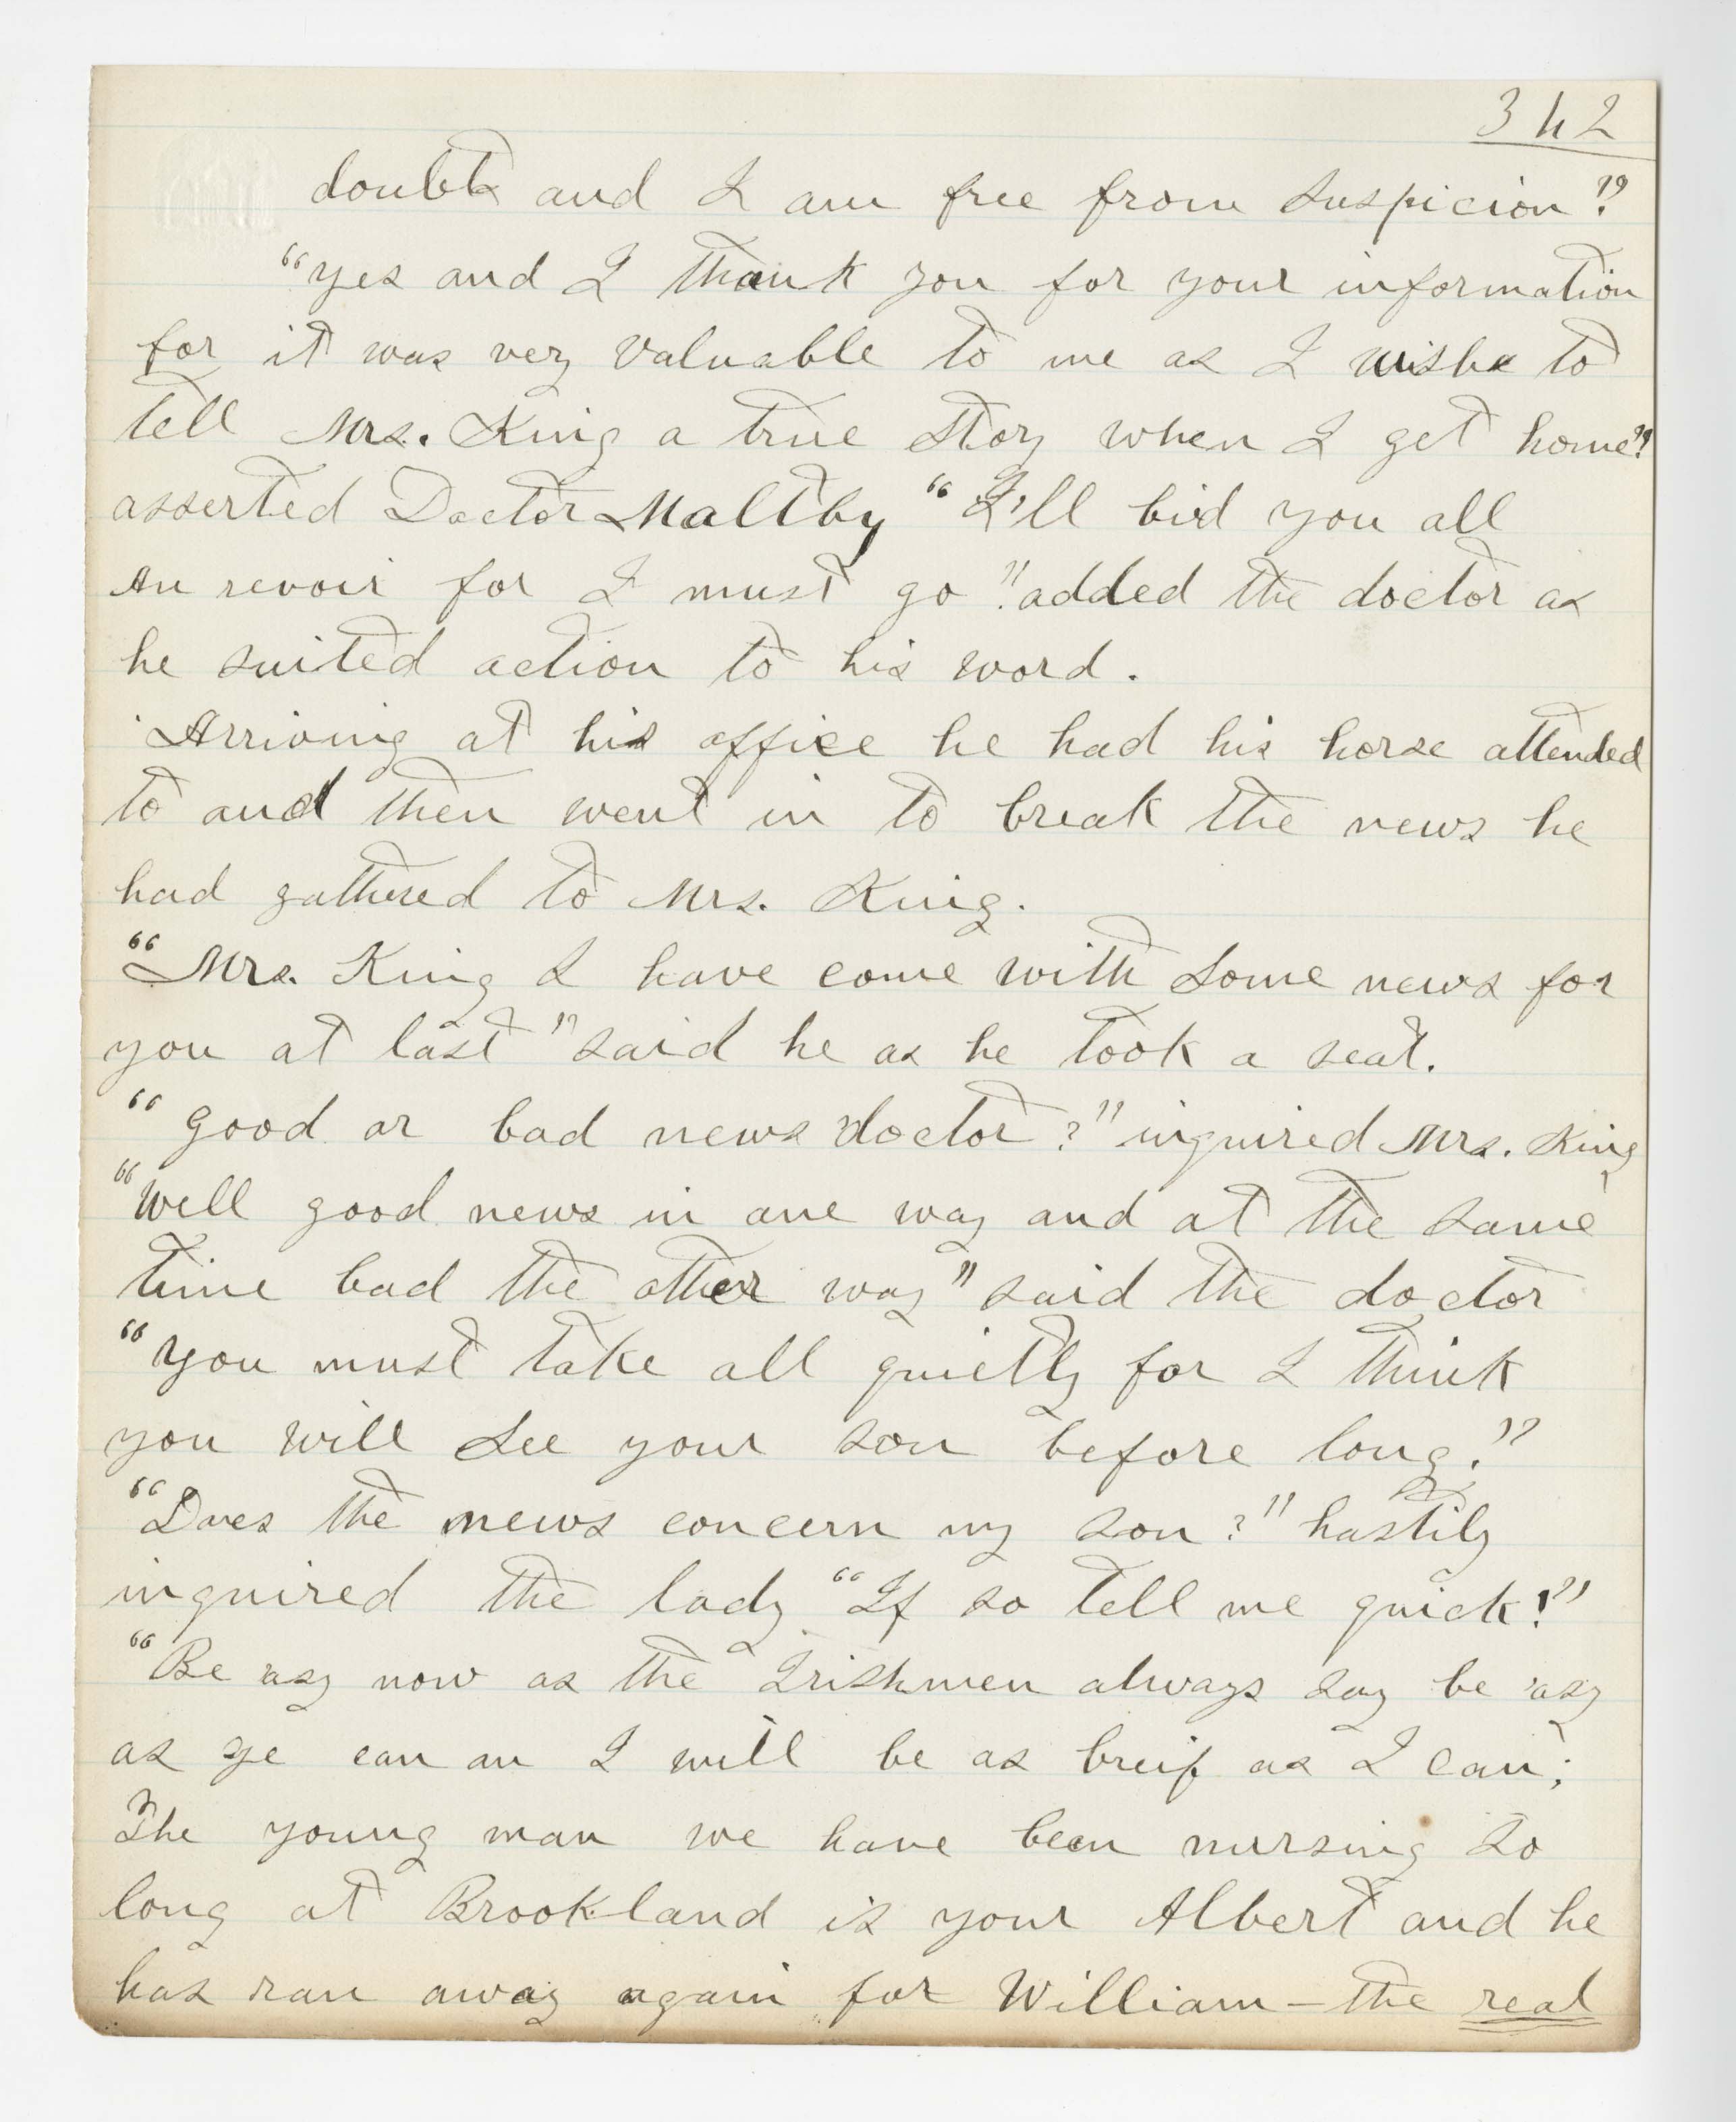 342
doubt and I am free from suspicion?"
"yes and I thank you for your information
for it was very valuable to me as I wish to
tell Mrs. King a true story when I get home"
asserted Doctor Maltby "I'll bid you all
Au revoir for I must go". added the doctor as
he suited action to his word.
Arriving at his office he had his horse attended
to and then went in to break the news he
had gathered to Mrs. King.
"Mrs. King I have come with some news for
you at last" said he as he took a seat.
"good or bad news doctor?" inquired Mrs. King
"Well good news in one way and at the same
time bad the other way" said the doctor
"you must take all quietly for I think
you will see your son before long."
"Does the news concern my son?" hastily
inquired the lady "If so tell me quick!"
"Be 'asy now as the Irishmen always say be 'asy
as ye can an I will be as breif as I can;
The young man we have been nursing so
long at Brookland is your Albert and he
has ran away again for William – the real